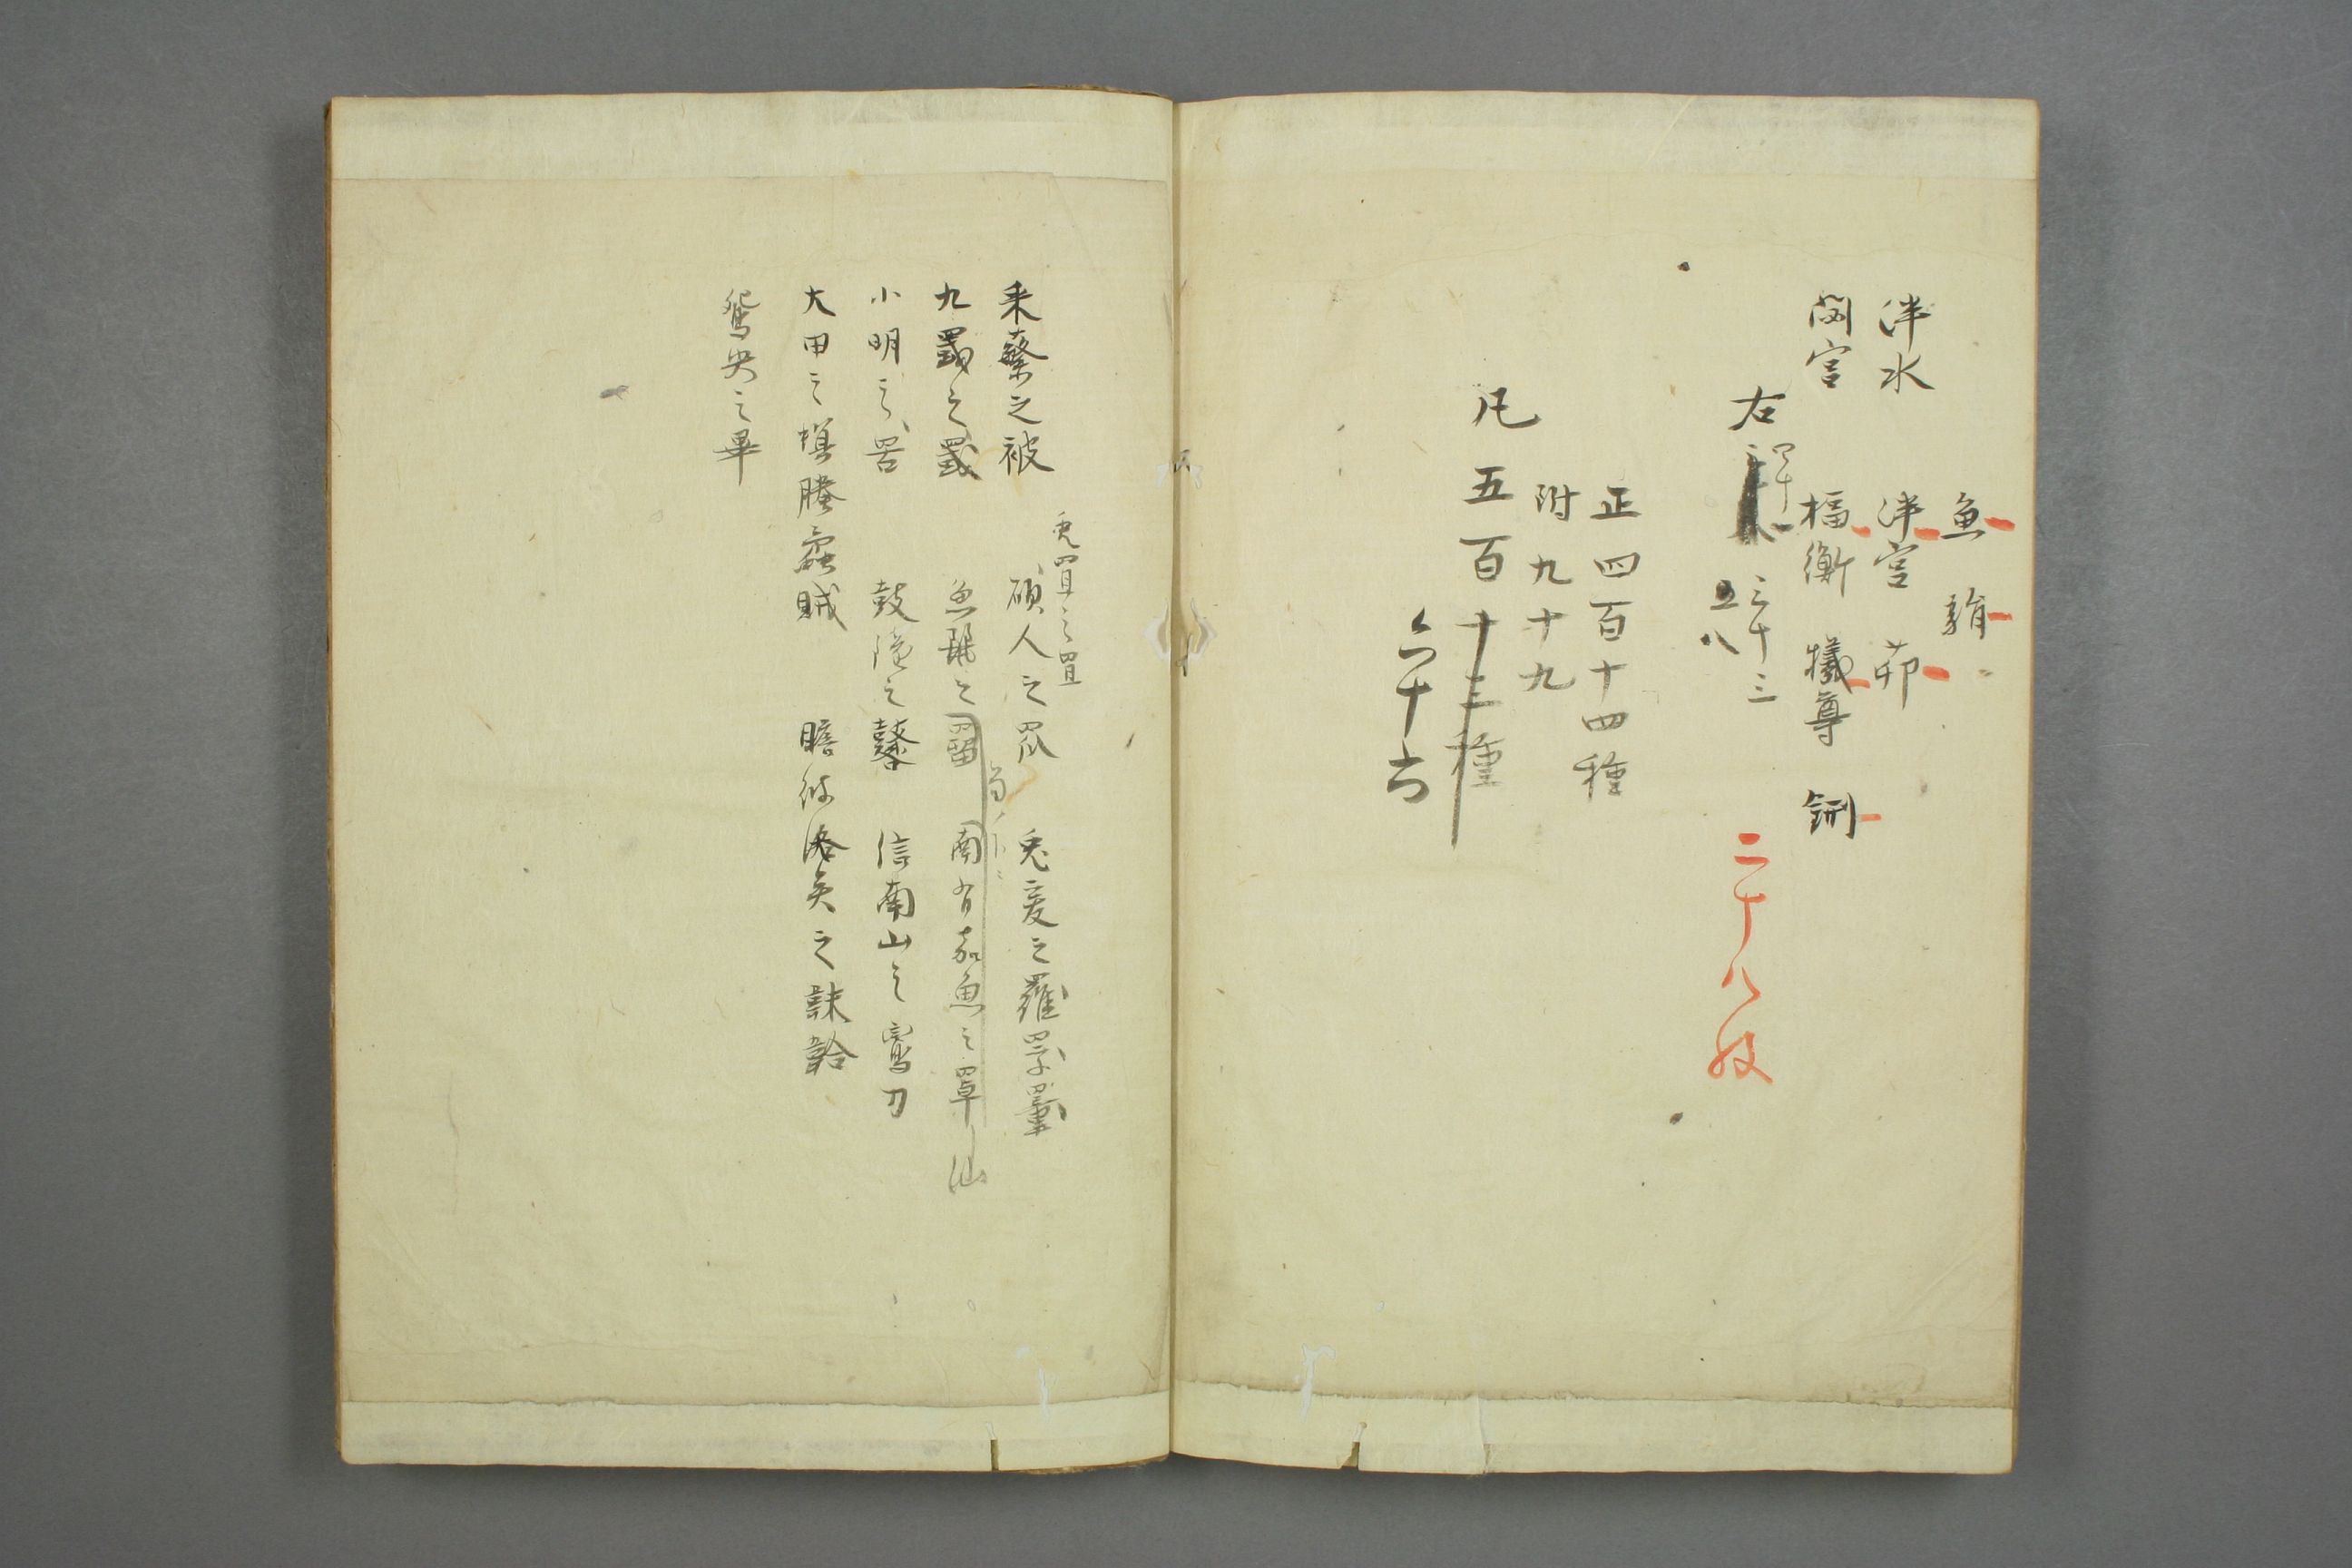 魚 䯱
泮水 泮宮 茆
閟宮 楅衡 犧尊 鉶
右 四十 三十三 二十八紋
五八
正四百十四種
附九十九
凡五百十三種
六十六
兎罝之罝
采蘩之被 碩人之罛 兎爰之羅罦罿
九罭之罭 魚麗之罶 南有嘉魚之罩汕
小明之罟 鼓鍾之鼛 信南山之鸞刀
大田之螟螣蟊賊 瞻彼洛矣之韎韐
鴛央之畢